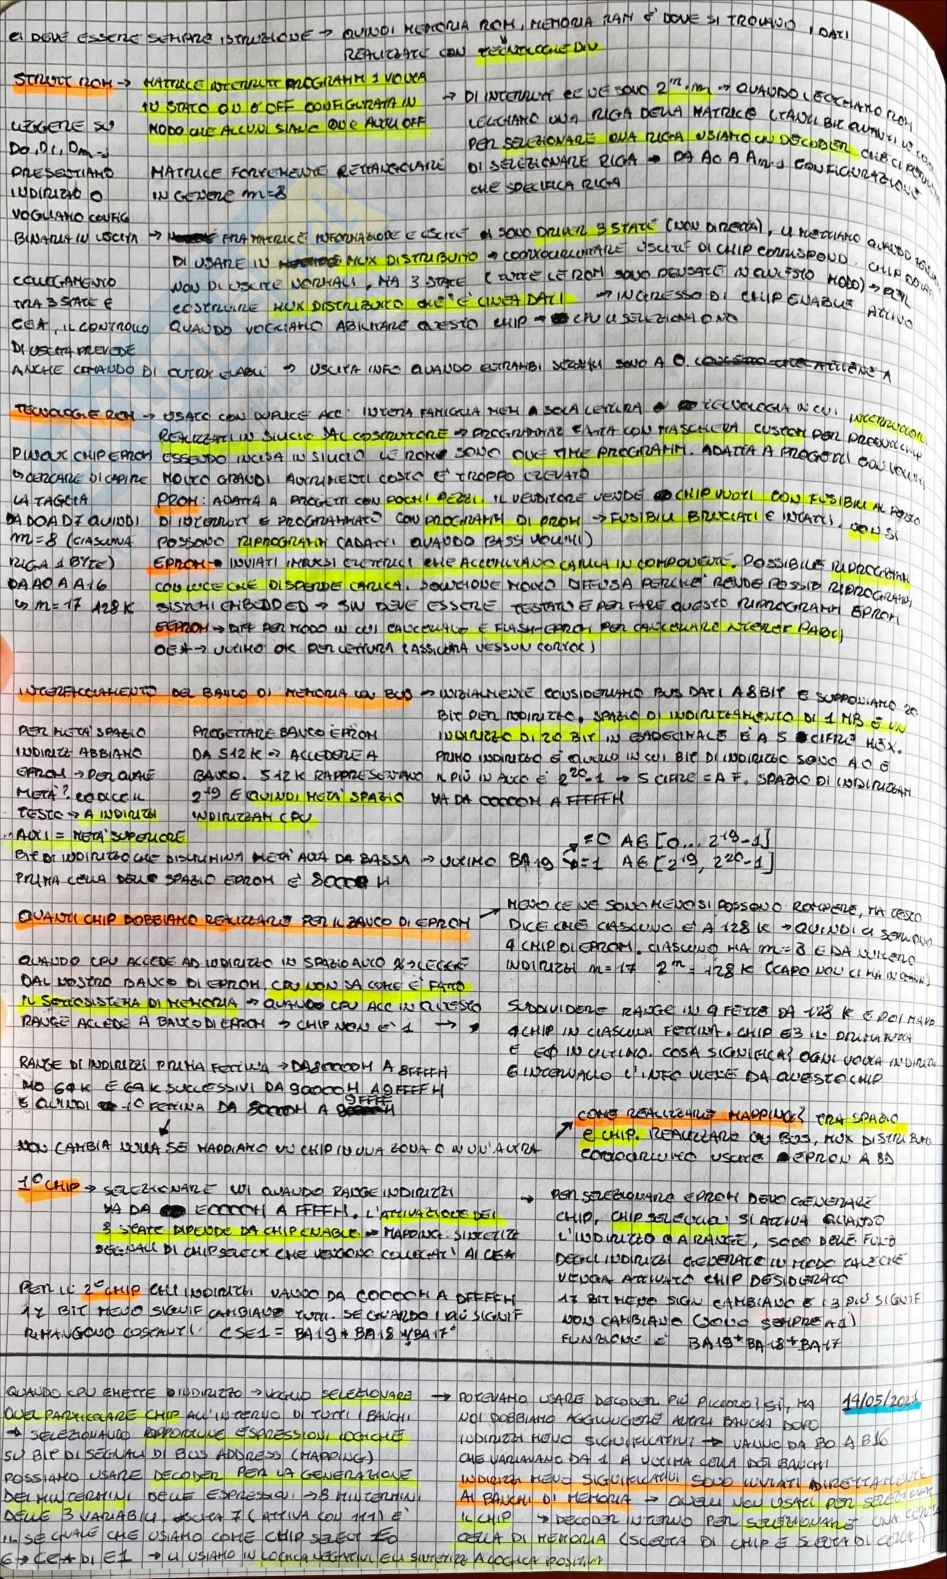 CI DEVE ESSERE SEMPRE ISTRUZIONE → QUINDI MEMORIA ROM, MEMORIA RAM È DOVE SI TROVANO I DATI
REALIZZATE CON TECNOLOGIE DIV
STRUTT ROM → MATRICE INTERRUTT PROGRAMM 1 VOLTA
IN STATO ON O OFF CONFIGURATA IN
MODO CHE ALCUNI SIANO ON E ALTRI OFF
→ DI INTERRUTT CE NE SONO 2^m · m → QUANDO LEGGIAMO ROM
LEGGIAMO UNA RIGA DELLA MATRICE
PER SELEZIONARE UNA RIGA USIAMO UN DECODER
DI SELEZIONARE RIGA → DA A0 A Am-1 CONFIGURAZIONE
CHE SPECIFICA RIGA
LEGGERE SU
D0, D1, Dm-1
PRESENTIAMO
INDIRIZZO O
VOGLIAMO CONFIG
BINARIA IN USCITA
MATRICE FORTEMENTE RETTANGOLARE
IN GENERE m=8
→ FRA MATRICE INFORMAZIONE E USCITE CI SONO DRIVER 3 STATE (NON DIRETTA), LI METTIAMO QUANDO
DI USARE IN MUX DISTRIBUITO → COORDINARE USCITE DI CHIP CORRISPOND.
NON DI USCITE NORMALI, MA 3 STATE (TUTTE LE ROM SONO PENSATE IN QUESTO MODO) → PER
COSTRUIRE MUX DISTRIBUITO CHE È LINEA DATI → INGRESSO DI CHIP ENABLE ATTIVO
QUANDO VOGLIAMO ABILITARE QUESTO CHIP → CPU LI SELEZIONANO
COLLEGAMENTO
TRA 3 STATE E
CE*, IL CONTROLLO
DI USCITA PREVEDE
ANCHE COMANDO DI OUTPUT ENABLE → USCITA INFO QUANDO ENTRAMBI SEGNALI SONO A 0.
TECNOLOGIE ROM → USATO CON DUPLICE ACC: INTERA FAMIGLIA MEM A SOLA LETTURA O TECNOLOGIA IN CUI INTERRUTTORI
REALIZZATI IN SILICIO DAL COSTRUTTORE → PROGRAMMAZ FATTA CON MASCHERA CUSTOM PER PRODUZ CHIP
ESSENDO INCISA IN SILICIO LE ROM SONO ONE TIME PROGRAMM. ADATTA A PROGETTI CON VOLUMI
MOLTO GRANDI ALTRIMENTI COSTO È TROPPO ELEVATO
PINOUT CHIP EPROM
↳ CERCARE DI CAPIRE
LA TAGLIA
DA D0 A D7 QUINDI
m=8 (CIASCUNA
RIGA 1 BYTE)
DA A0 A A16
↳ m=17 128K
PROM: ADATTA A PROGETTI CON POCHI PEZZI. IL VENDITORE VENDE CHIP VUOTI CON FUSIBILI AL POSTO
DI INTERRUTT E PROGRAMMATO CON PROGRAMM DI PROM → FUSIBILI BRUCIATI E INTATTI, NON SI
POSSONO RIPROGRAMM (ADATTI QUANDO BASSI VOLUMI)
EPROM → INVIATI IMPULSI ELETTRICI CHE ACCUMULANO CARICA IN COMPONENTE. POSSIBILE RIPROGRAMM
CON LUCE CHE DISPERDE CARICA. SOLUZIONE MOLTO DIFFUSA PERCHÉ RENDE POSSIB RIPROGRAMM
SISTEMI EMBEDDED → SW DEVE ESSERE TESTATO E PER FARE QUESTO RIPROGRAMM EPROM
EEPROM → DIFF PER MODO IN CUI CANCELLATO E FLASH-EPROM PER CANCELLARE INTERE PAGG
OE* → ULTIMO OK PER LETTURA (ASSICURA NESSUN CORTOC)
INTERFACCIAMENTO DEL BANCO DI MEMORIA CON BUS → INIZIALMENTE CONSIDERIAMO BUS DATI A 8 BIT E SUPPONIAMO 20
BIT PER INDIRIZZO. SPAZIO DI INDIRIZZAMENTO DI 1 MB E UN
INDIRIZZO DI 20 BIT IN ESADECIMALE È A 5 CIFRE HEX.
PRIMO INDIRIZZO È QUELLO IN CUI BIT DI INDIRIZZO SONO A 0 E
IL PIÙ IN ALTO È 2^20-1 → 5 CIFRE = A F. SPAZIO DI INDIRIZZAM
VA DA 00000H A FFFFFH
PER METÀ SPAZIO
INDIRIZZ ABBIAMO
EPROM → PER QUALE
METÀ? CODICE IL
TESTO → A INDIRIZZI
ALTI = METÀ SUPERIORE
PROGETTARE BANCO EPROM
DA 512K → ACCEDERE A
BANCO. 512K RAPPRESENTANO
2^19 E QUINDI METÀ SPAZIO
INDIRIZZAM CPU
BIT DI INDIRIZZO CHE DISCRIMINA METÀ ALTA DA BASSA → ULTIMO BA19 =0 A∈[0...2^19-1]
=1 A∈[2^19, 2^20-1]
PRIMA CELLA DELLO SPAZIO EPROM È 80000H
QUANTI CHIP DOBBIAMO REALIZZARE PER IL BANCO DI EPROM
↗ MENO CE NE SONO MENO SI POSSONO ROMPERE, MA TESTO
DICE CHE CIASCUNO È A 128K → QUINDI CI SERVONO
4 CHIP DI EPROM. CIASCUNO HA m=8 E DA NUMERO
INDIRIZZI m=17 2^m = 128K
QUANDO CPU ACCEDE AD INDIRIZZO IN SPAZIO ALTO → LEGGE
DAL NOSTRO BANCO DI EPROM, CPU NON SA COME È FATTO
IL SOTTOSISTEMA DI MEMORIA → QUANDO CPU ACC IN QUESTO
RANGE ACCEDE A BANCO DI EPROM → CHIP NON È 1 →
SUDDIVIDERE RANGE IN 4 FETTE DA 128K E POI MAPP
4 CHIP IN CIASCUNA FETTINA. CHIP E3 IN PRIMA FETTA
E E0 IN ULTIMO. COSA SIGNIFICA? OGNI VOLTA INDIRIZZO
È INTERVALLO L'INFO VIENE DA QUESTO CHIP
RANGE DI INDIRIZZI PRIMA FETTINA → DA 80000H A 8FFFFH
MO 64K E 64K SUCCESSIVI DA 90000H A 9FFFFH
E QUINDI → 1° FETTINA DA 80000H A 9FFFFH
NON CAMBIA NULLA SE MAPPIAMO UN CHIP IN UNA ZONA O IN UN'ALTRA
↗ COME REALIZZARE MAPPING? TRA SPAZIO
E CHIP. REALIZZARE UN BUS, MUX DISTRIBUITO
COLLEGHIAMO USCITE EPROM A BD
1° CHIP → SELEZIONARE LUI QUANDO RANGE INDIRIZZI
VA DA E0000H A FFFFH. L'ATTIVAZIONE DEI
3 STATE DIPENDE DA CHIP ENABLE → MAPPING: SINTETIZZ
SEGNALI DI CHIP SELECT CHE VENGONO COLLEGATI AI CE*
→ PER SELEZIONARE EPROM DEVO GENERARE
CHIP. CHIP SELECT: SI ATTIVA QUANDO
L'INDIRIZZO È A RANGE, SONO DELLE FUNZ
DEGLI INDIRIZZI GENERATE IN MODO TALE CHE
VENGA ATTIVATO CHIP DESIDERATO
17 BIT MENO SIGN CAMBIANO E I 3 PIÙ SIGNIF
NON CAMBIANO (SONO SEMPRE A 1)
FUNZIONE È BA19*BA18*BA17
PER IL 2° CHIP GLI INDIRIZZI VANNO DA C0000H A DFFFFH
17 BIT MENO SIGNIF CAMBIANO TUTTI. SE GUARDO I PIÙ SIGNIF
RIMANGONO COSTANTI: CSE1 = BA19*BA18*BA17*
QUANDO CPU EMETTE 1 INDIRIZZO → VOGLIO SELEZIONARE
QUEL PARTICOLARE CHIP ALL'INTERNO DI TUTTI I BANCHI
→ SELEZIONANDO OPPORTUNE ESPRESSIONI LOGICHE
SU BIT DI SEGNALI DI BUS ADDRESS (MAPPING)
POSSIAMO USARE DECODER PER LA GENERAZIONE
DEI MINTERMINI DELLE ESPRESSIONI → 8 MINTERMINI
DELLE 3 VARIABILI, USCITA 7 (ATTIVA CON 111) È
IL SEGNALE CHE USIAMO COME CHIP SELECT E0
E → CE* DI E1 → LI USIAMO IN LOGICA NEGATIVA E LI SINTETIZZ A LOGICA POSITIVA
→ POTEVAMO USARE DECODER PIÙ PICCOLO? SÌ, MA 14/05/2021
NOI DOBBIAMO AGGIUNGERE ALTRI BANCHI DOPO
INDIRIZZI MENO SIGNIFICATIVI → VANNO DA B0 A B16
CHE VARIAVANO DA 1 A ULTIMA CELLA DEI BANCHI
INDIRIZZI MENO SIGNIFICATIVI SONO INVIATI DIRETTAMENTE
AI BANCHI DI MEMORIA → QUELLI NON USATI PER SELEZIONARE
IL CHIP → DECODER INTERNO PER SELEZIONARE UNA
CELLA DI MEMORIA (SCELTA DI CHIP E SCELTA DI CELLA)